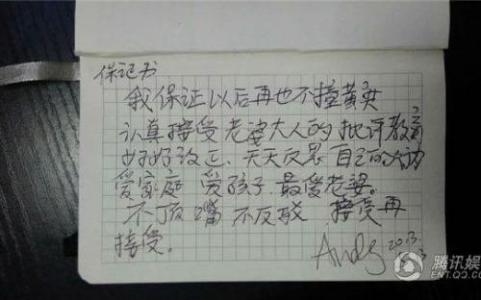 保证书
我保证以后再也不撞黄实
认真接受老婆大人的批评教育
好好改正、天天反思自己的
爱家庭 爱孩子 最爱老婆。
不顶嘴 不反驳 接受再
接受。
Andy 2013.
腾讯娱
ENT.QQ.COM